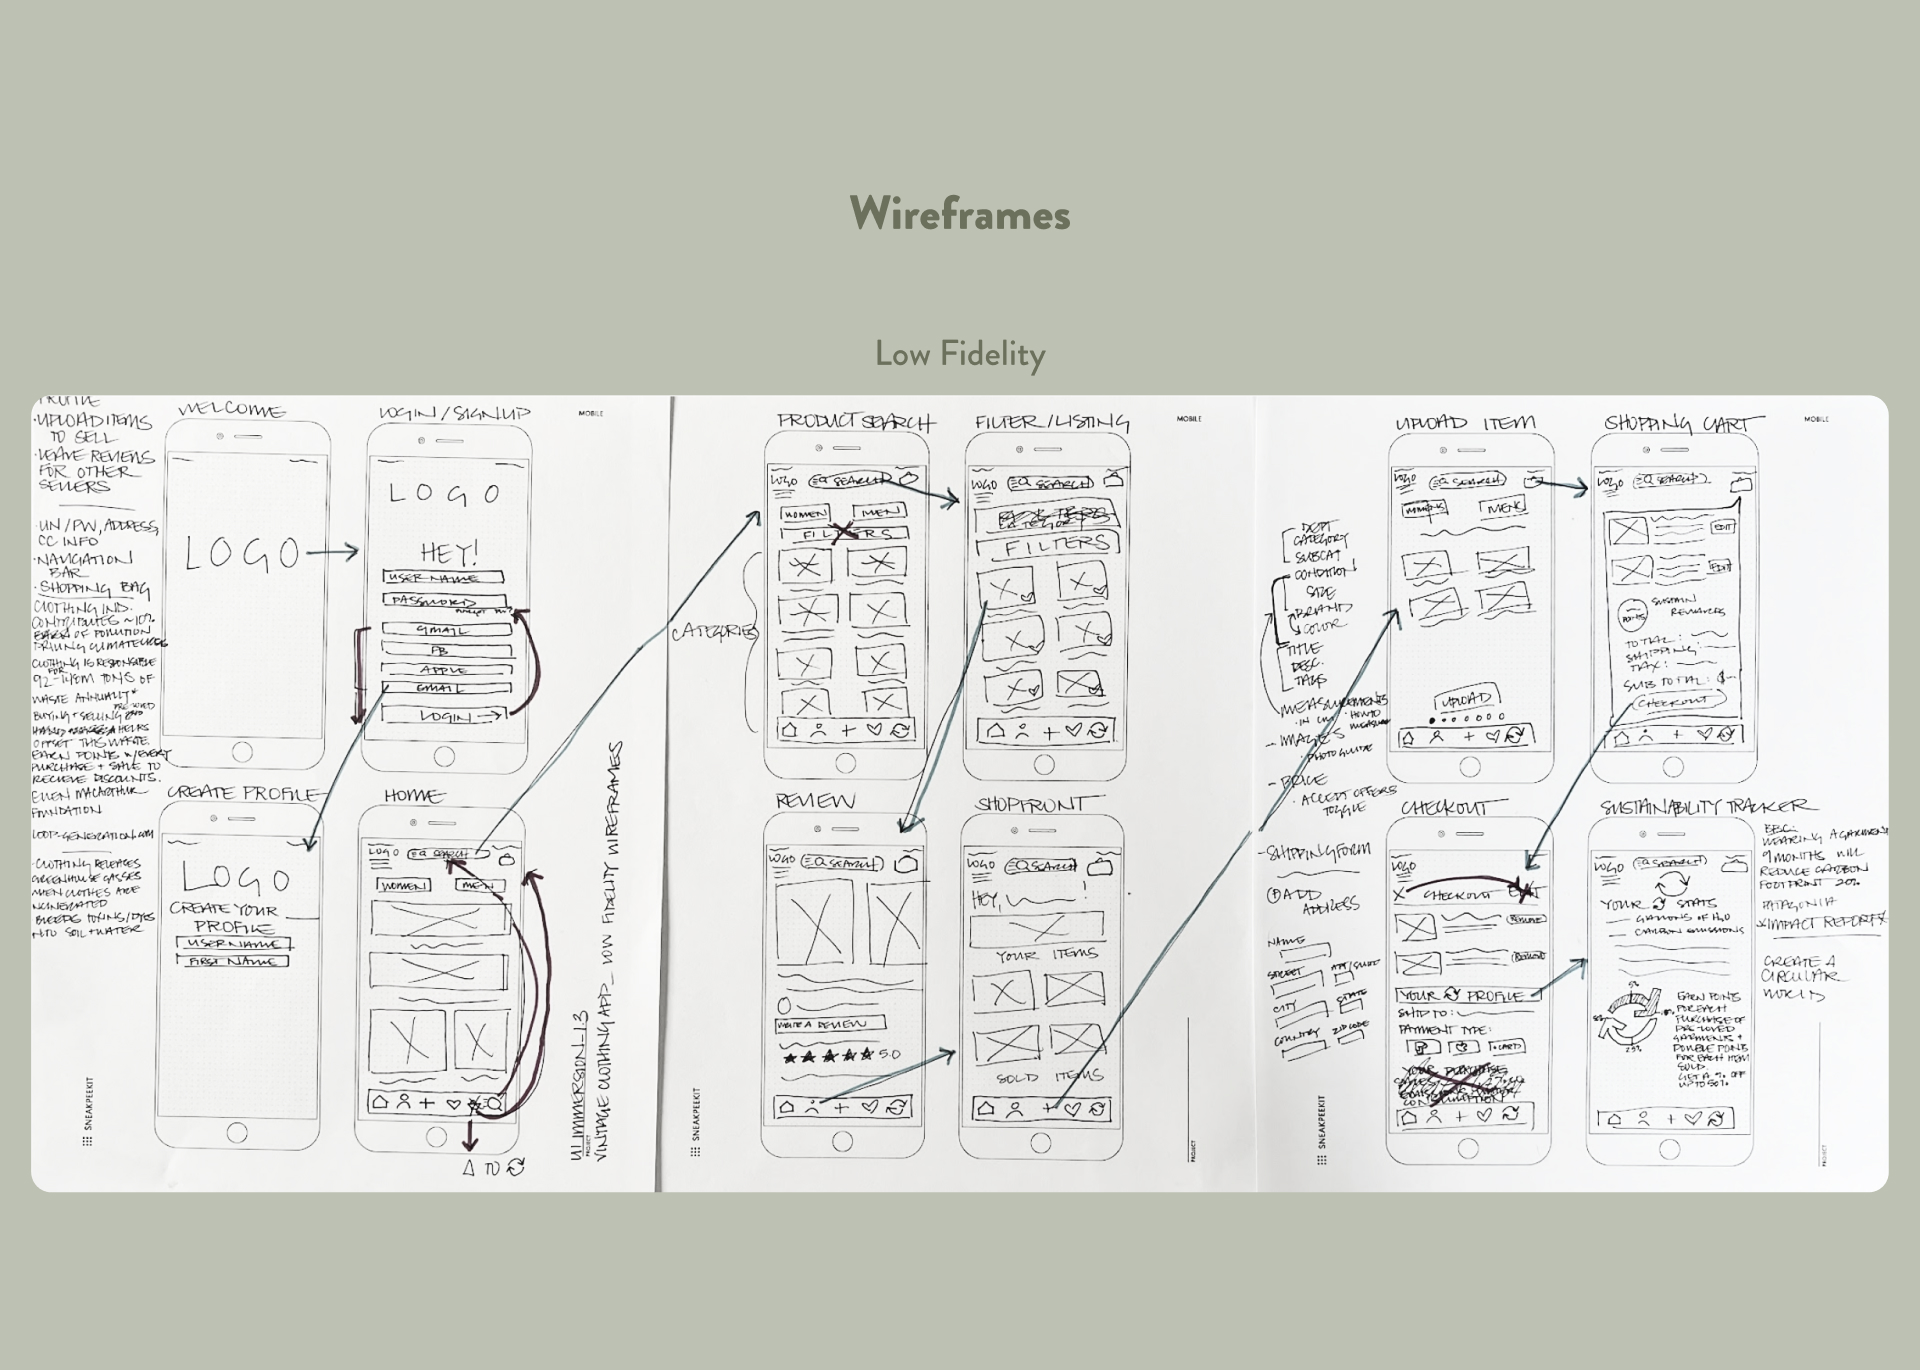 Wireframes
Low Fidelity
PROFILE
·UPLOAD ITEMS
TO SELL
·LEAVE REVIEWS
FOR OTHER
SELLERS
·UN/PW, ADDRESS,
CC INFO
·NAVIGATION
BAR
·SHOPPING BAG
CLOTHING IND.
CONTRIBUTES ~10%
OF POLLUTION
DRIVING CLIMATE
CLOTHING IS RESPONSIBLE
FOR
TONS OF
WASTE ANNUALLY*
BUYING + SELLING
HELPS
OFFSET THIS WASTE.
EARN POINTS W/EVERY
PURCHASE + SALE TO
RECIEVE DISCOUNTS.
ELLEN MACARTHUR
FOUNDATION
LOOP-GENERATION.COM
·CLOTHING RELEASES
GREENHOUSE GASSES
WHEN CLOTHES ARE
INCINERATED
BLEEDS TOXINS/DYES
INTO SOIL + WATER
WELCOME
LOGO
LOGIN/SIGNUP
LOGO
HEY!
USER NAME
PASSWORD
FORGOT PW?
GMAIL
FB
APPLE
EMAIL
LOGIN →
MOBILE
CREATE PROFILE
LOGO
CREATE YOUR
PROFILE
USERNAME
FIRST NAME
HOME
LOGO
SEARCH
WOMEN
MEN
Δ TO
SNEAKPEEKIT
PROJECT
UI IMMERSION_1.3
VINTAGE CLOTHING APP_ LOW FIDELITY WIREFRAMES
PRODUCT SEARCH
LOGO
SEARCH
WOMEN
MEN
FILTERS
CATEGORIES
FILTER/LISTING
LOGO
SEARCH
FILTERS
MOBILE
REVIEW
LOGO
SEARCH
WRITE A REVIEW
★★★★★ 5.0
SHOPFRONT
LOGO
SEARCH
HEY, !
YOUR ITEMS
SOLD ITEMS
SNEAKPEEKIT
PROJECT
DEPT
CATEGORY
SUBCAT
CONDITION
SIZE
BRAND
COLOR
TITLE
DESC.
TAGS
-MEASUREMENTS
·HOW TO
MEASURE
-IMAGES
·PHOTO GUIDE
-PRICE
·ACCEPT OFFERS
TOGGLE
-SHIPPING FORM
ADD
ADDRESS
NAME
STREET
APT/SUITE
CITY
STATE
COUNTRY
ZIP CODE
UPLOAD ITEM
LOGO
SEARCH
WOMENS
MENS
UPLOAD
SHOPPING CART
LOGO
SEARCH
EDIT
EDIT
SUSTAIN
REWARDS
POINTS
TOTAL:
SHIPPING:
TAX:
SUBTOTAL: $
CHECKOUT
MOBILE
CHECKOUT
LOGO
X CHECKOUT
REMOVE
REMOVE
YOUR PROFILE
SHIP TO:
PAYMENT TYPE:
+CARD
SUSTAINABILITY TRACKER
LOGO
SEARCH
YOUR STATS
GALLONS OF H2O
CARBON EMISSIONS
EARN POINTS
FOR EACH
PURCHASE OF
PRE-LOVED
GARMENTS +
DOUBLE POINTS
FOR EACH ITEM
SOLD.
GET A % OFF
UP TO 50%
25%
BBC:
WEARING A GARMENT
9 MONTHS WILL
REDUCE CARBON
FOOTPRINT 20%
PATAGONIA
IMPACT REPORT
CREATE A
CIRCULAR
WORLD
SNEAKPEEKIT
PROJECT